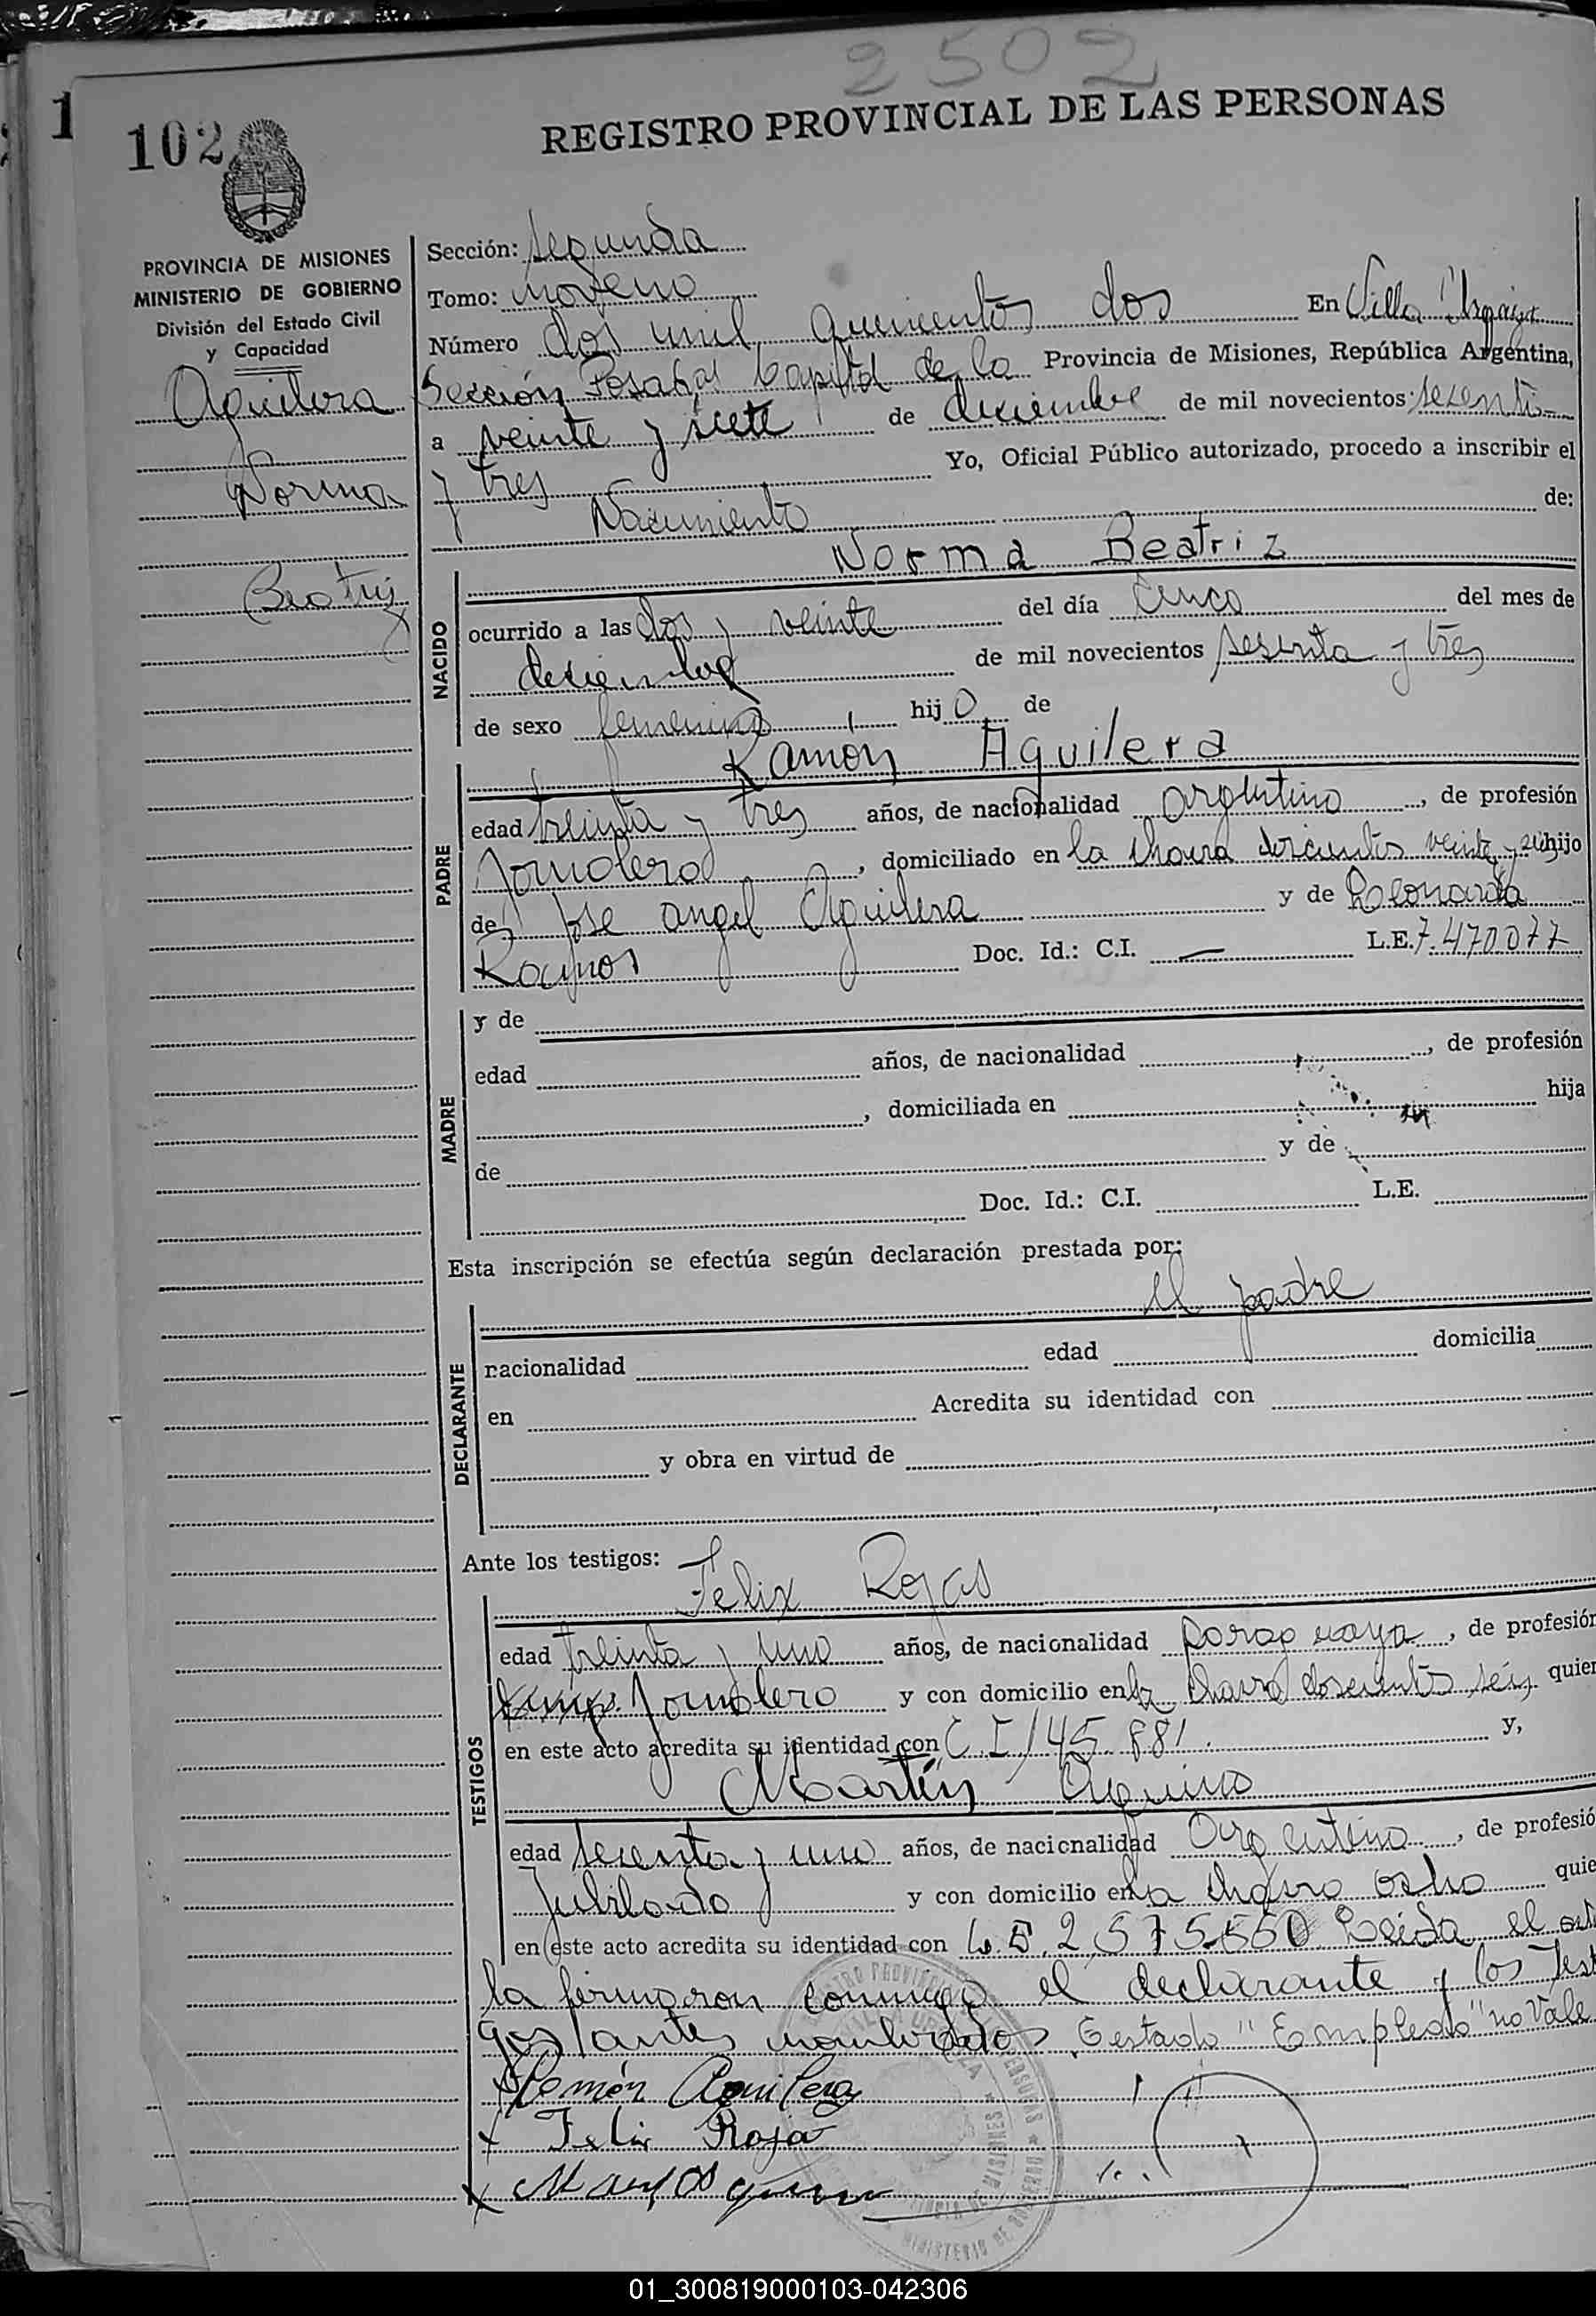 2502
1
102
REGISTRO PROVINCIAL DE LAS PERSONAS
PROVINCIA DE MISIONES
MINISTERIO DE GOBIERNO
División del Estado Civil
y Capacidad
Aguilera
Norma
Beatriz
Sección: Segunda
Tomo: noveno
Número dos mil quinientos dos En Villa Urquiza
Sección Posadas Capital de la Provincia de Misiones, República Argentina,
a veinte y siete de diciembre de mil novecientos sesenta
y tres Yo, Oficial Público autorizado, procedo a inscribir el
Nacimiento de:
NACIDO
Norma Beatriz
ocurrido a las dos y veinte del día cinco del mes de
diciembre de mil novecientos sesenta y tres
de sexo femenino hijo de
PADRE
Ramón Aguilera
edad treinta y tres años, de nacionalidad argentino, de profesión
Jornalero, domiciliado en la chacra doscientos veinte y hijo
de José angel Aguilera y de Leonarda
Ramos Doc. Id.: C.I. — L.E. 7.470077
MADRE
y de
edad años, de nacionalidad , de profesión
, domiciliada en hija
de y de
Doc. Id.: C.I. L.E.
Esta inscripción se efectúa según declaración prestada por:
DECLARANTE
el padre
nacionalidad edad domicilia
en Acredita su identidad con
y obra en virtud de
Ante los testigos:
TESTIGOS
Felix Rojas
edad treinta y uno años, de nacionalidad paraguaya, de profesión
Jornalero y con domicilio en la chacra doscientos seis quien
en este acto acredita su identidad con C.I. 145.881. y,
Martín Aquino
edad sesenta y uno años, de nacionalidad Argentino, de profesió
Jubilado y con domicilio en la chacra ocho quie
en este acto acredita su identidad con L.E. 2575.550 Leida el act
la firmaron conmigo el declarante y los Test
gos antes nombrados. Testado "Empleado" no Vale
x Ramón Aguilera
x Felix Roja
x
01_300819000103-042306